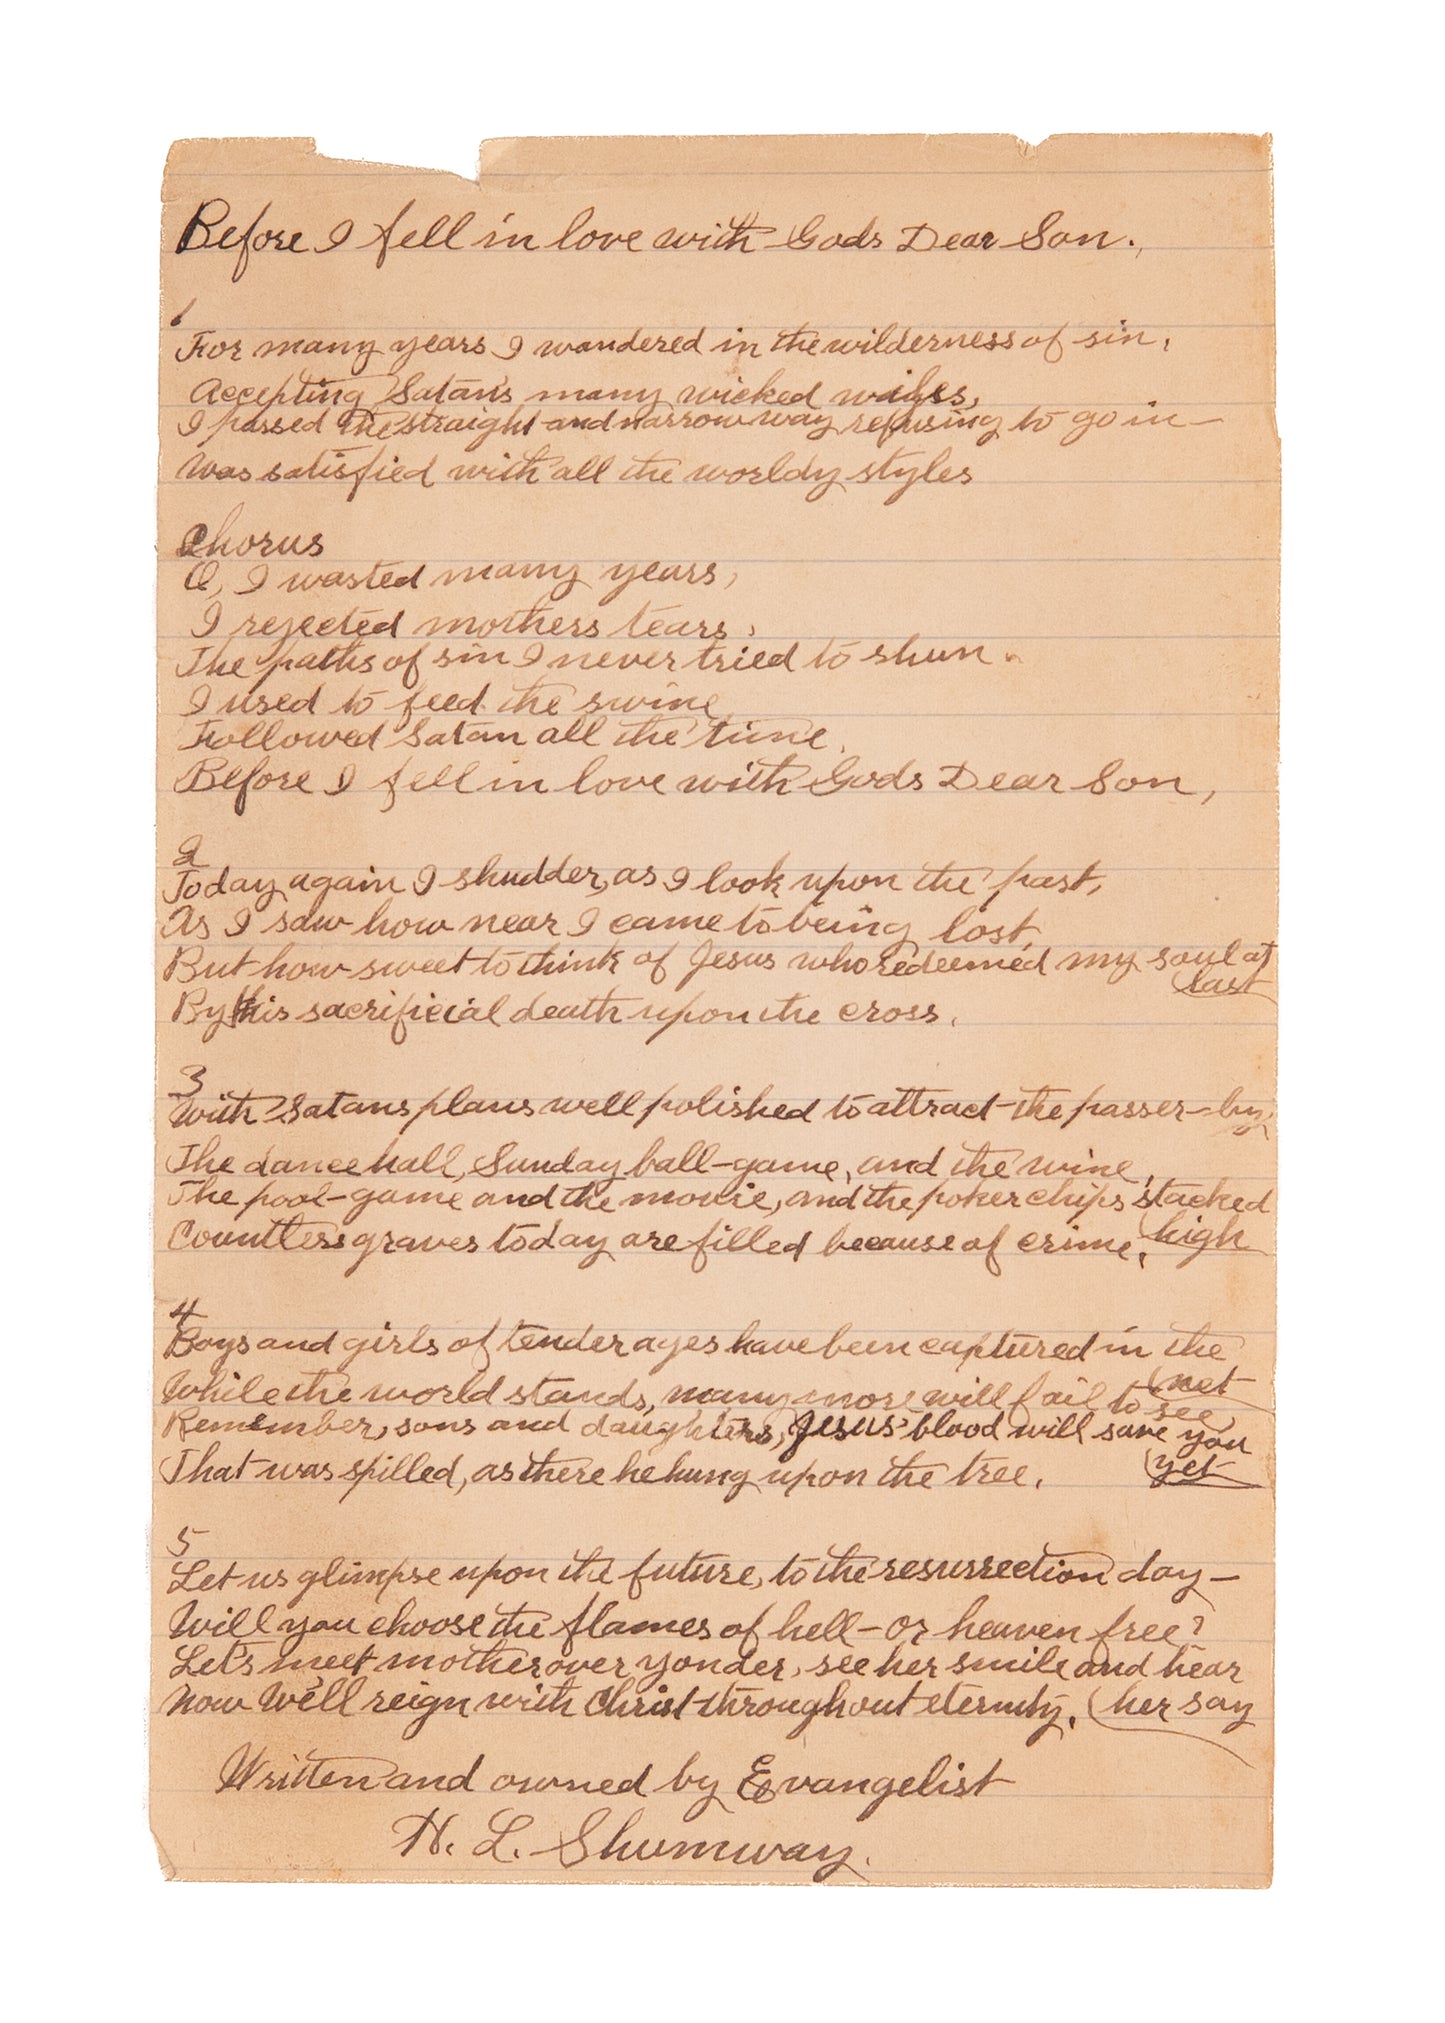 Before I fell in love with Gods Dear Son.
1
For many years I wandered in the wilderness of sin,
Accepting Satan's many wicked wiles,
I passed the straight and narrow way refusing to go in—
Was satisfied with all the worldy styles
Chorus
O, I wasted many years,
I rejected mothers tears,
The paths of sin I never tried to shun.
I used to feed the swine
Followed Satan all the time.
Before I fell in love with Gods Dear Son,
2
Today again I shudder, as I look upon the past,
As I saw how near I came to being lost,
But how sweet to think of Jesus who redeemed my soul at
last
By His sacrificial death upon the cross.
3
With Satans plans well polished to attract the passer-by,
The dance hall, Sunday ball-game, and the wine,
The pool-game and the movie, and the poker chips stacked
high
Countless graves today are filled because of crime.
4
Boys and girls of tender ages have been captured in the
net
While the world stands, many more will fail to see,
Remember, sons and daughters, Jesus' blood will save you
yet
That was spilled, as there he hung upon the tree.
5
Let us glimpse upon the future, to the resurrection day—
Will you choose the flames of hell—or heaven free?
Let's meet mother over yonder, see her smile and hear
her say
Now We'll reign with Christ throughout eternity.
Written and owned by Evangelist
H. L. Shumway.